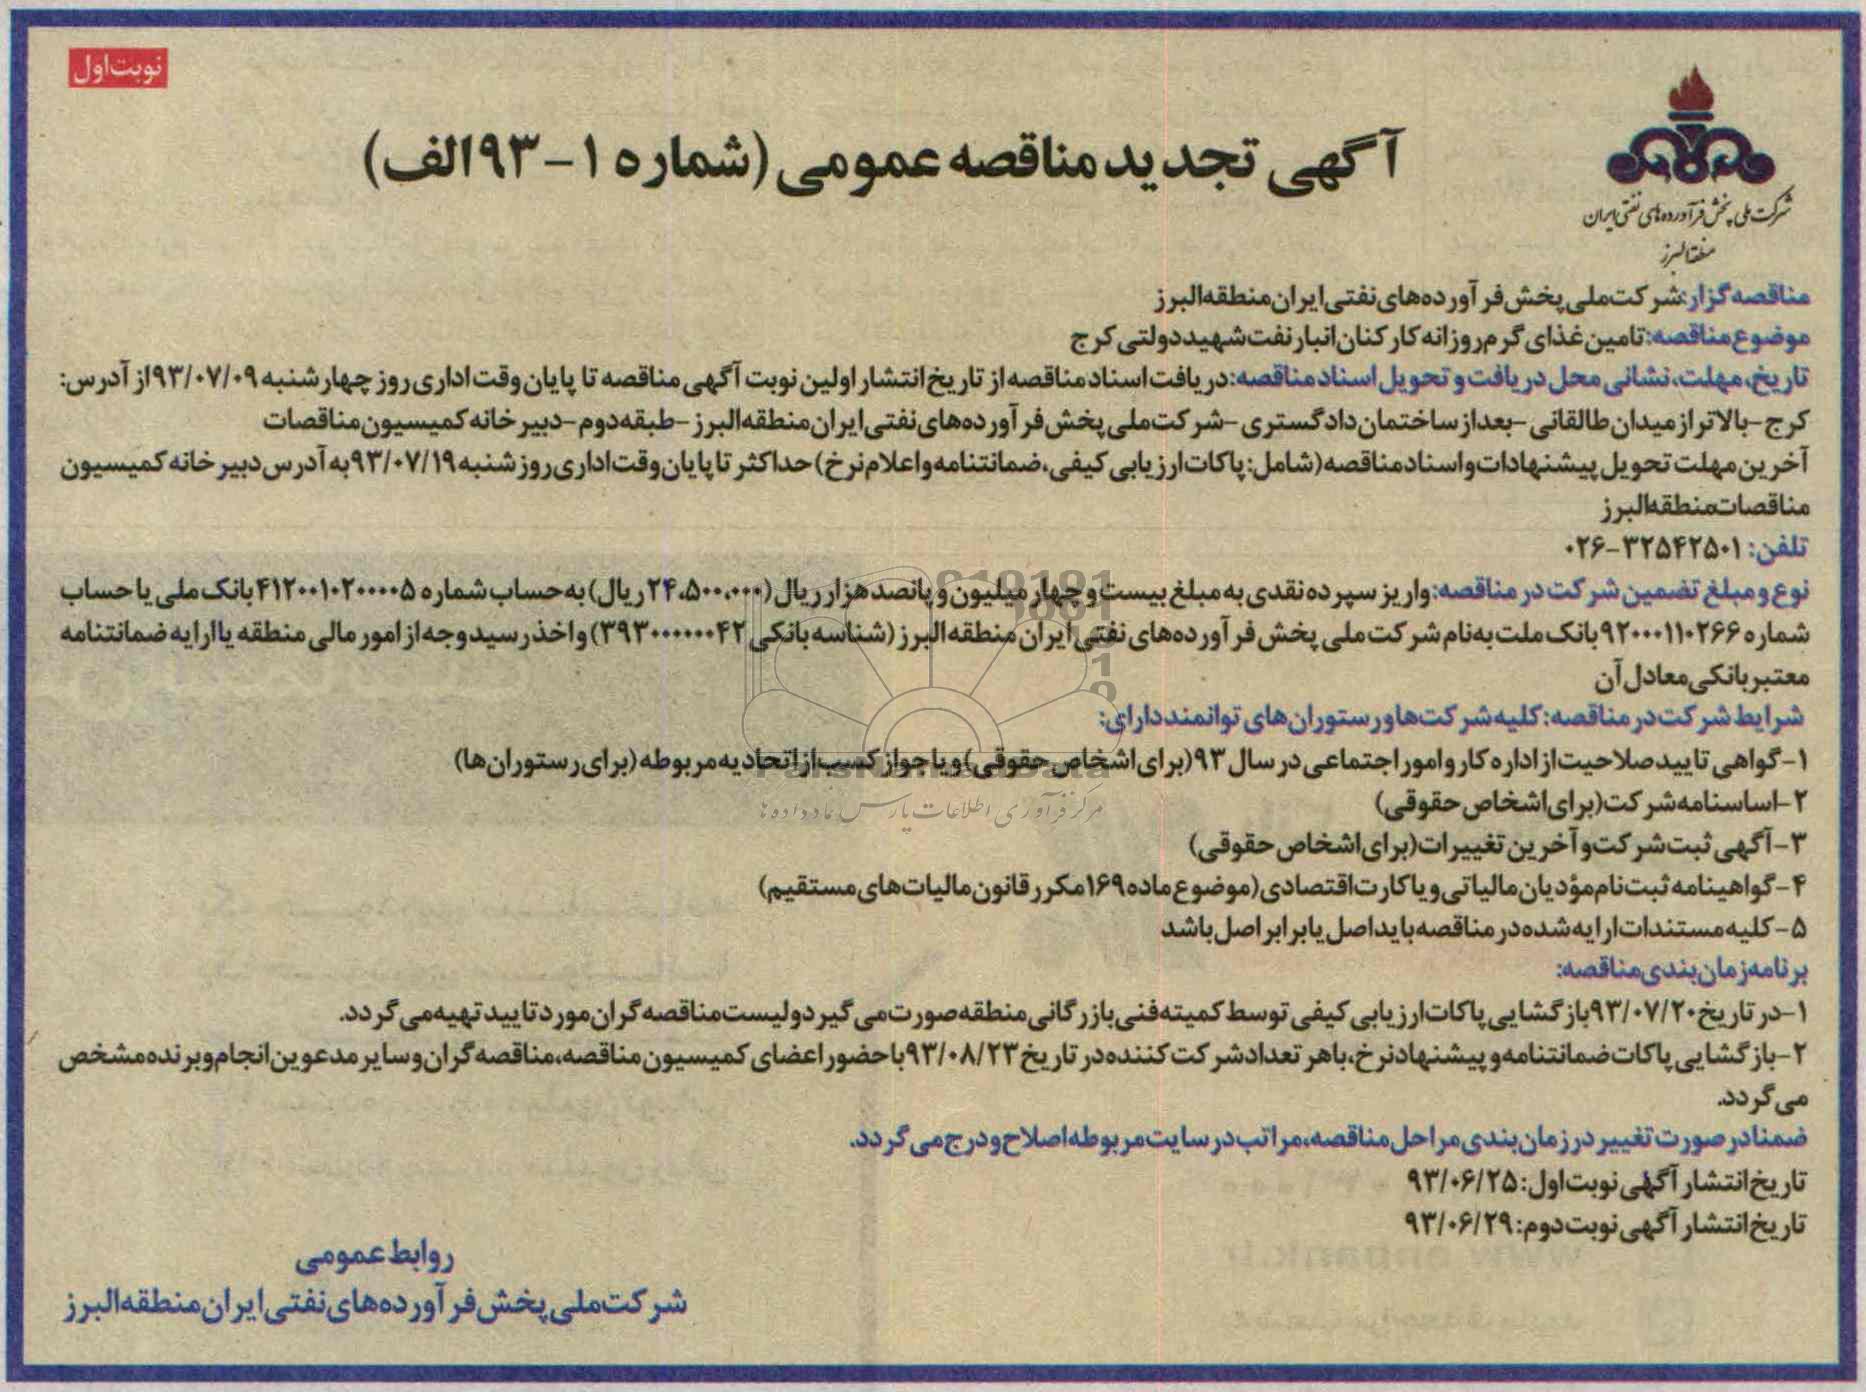 نوبت اول
شرکت ملی پخش فرآورده‌های نفتی ایران
منطقه البرز
آگهی تجدید مناقصه عمومی (شماره ۱-۹۳الف)
مناقصه گزار: شرکت ملی پخش فرآورده‌های نفتی ایران منطقه البرز
موضوع مناقصه: تامین غذای گرم روزانه کارکنان انبار نفت شهید دولتی کرج
تاریخ، مهلت، نشانی محل دریافت و تحویل اسناد مناقصه: دریافت اسناد مناقصه از تاریخ انتشار اولین نوبت آگهی مناقصه تا پایان وقت اداری روز چهارشنبه ۹۳/۰۷/۰۹ از آدرس:
کرج - بالاتر از میدان طالقانی - بعد از ساختمان دادگستری - شرکت ملی پخش فرآورده‌های نفتی ایران منطقه البرز - طبقه دوم - دبیرخانه کمیسیون مناقصات
آخرین مهلت تحویل پیشنهادات و اسناد مناقصه (شامل: پاکات ارزیابی کیفی، ضمانتنامه و اعلام نرخ) حداکثر تا پایان وقت اداری روز شنبه ۹۳/۰۷/۱۹ به آدرس دبیرخانه کمیسیون
مناقصات منطقه البرز
تلفن: ۳۲۵۴۲۵۰۱-۰۲۶
نوع و مبلغ تضمین شرکت در مناقصه: واریز سپرده نقدی به مبلغ بیست و چهار میلیون و پانصد هزار ریال (۲۴،۵۰۰،۰۰۰ ریال) به حساب شماره ۴۱۲۰۰۱۰۲۰۰۰۰۵ بانک ملی یا حساب
شماره ۹۲۰۰۰۱۱۰۲۶۶ بانک ملت به نام شرکت ملی پخش فرآورده‌های نفتی ایران منطقه البرز (شناسه بانکی ۳۹۳۰۰۰۰۰۰۴۲) و اخذ رسید وجه از امور مالی منطقه یا ارایه ضمانتنامه
معتبر بانکی معادل آن
شرایط شرکت در مناقصه: کلیه شرکت‌ها و رستوران‌های توانمند دارای:
۱- گواهی تایید صلاحیت از اداره کار و امور اجتماعی در سال ۹۳ (برای اشخاص حقوقی) و یا جواز کسب از اتحادیه مربوطه (برای رستوران‌ها)
۲- اساسنامه شرکت (برای اشخاص حقوقی)
مرکز فرآوری اطلاعات پارس نماد داده ها
۳- آگهی ثبت شرکت و آخرین تغییرات (برای اشخاص حقوقی)
۴- گواهینامه ثبت نام مؤدیان مالیاتی و یا کارت اقتصادی (موضوع ماده ۱۶۹ مکرر قانون مالیات‌های مستقیم)
۵- کلیه مستندات ارایه شده در مناقصه باید اصل یا برابر اصل باشد
برنامه زمان‌بندی مناقصه:
۱- در تاریخ ۹۳/۰۷/۲۰ بازگشایی پاکات ارزیابی کیفی توسط کمیته فنی بازرگانی منطقه صورت می گیرد و لیست مناقصه گران مورد تایید تهیه می گردد.
۲- بازگشایی پاکات ضمانتنامه و پیشنهاد نرخ، با هر تعداد شرکت کننده در تاریخ ۹۳/۰۸/۲۳ با حضور اعضای کمیسیون مناقصه، مناقصه گران و سایر مدعوین انجام و برنده مشخص
می گردد.
ضمنا در صورت تغییر در زمان‌بندی مراحل مناقصه، مراتب در سایت مربوطه اصلاح و درج می گردد.
تاریخ انتشار آگهی نوبت اول: ۹۳/۰۶/۲۵
تاریخ انتشار آگهی نوبت دوم: ۹۳/۰۶/۲۹
روابط عمومی
شرکت ملی پخش فرآورده‌های نفتی ایران منطقه البرز